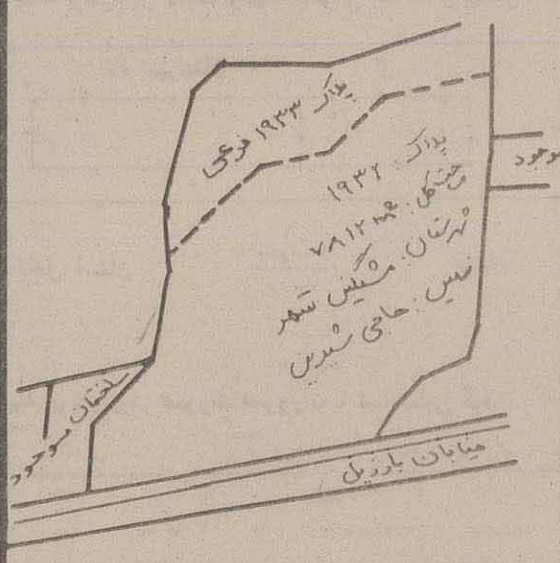 پلاک ۱۹۳۳ فرعی
پلاک: ۱۹۳۲
مساحت کل: ۷۸۱۲ م۲
شهرستان: مشگین شهر
حاجی شیرین
موجود
ساختمان موجود
خیابان باردیل